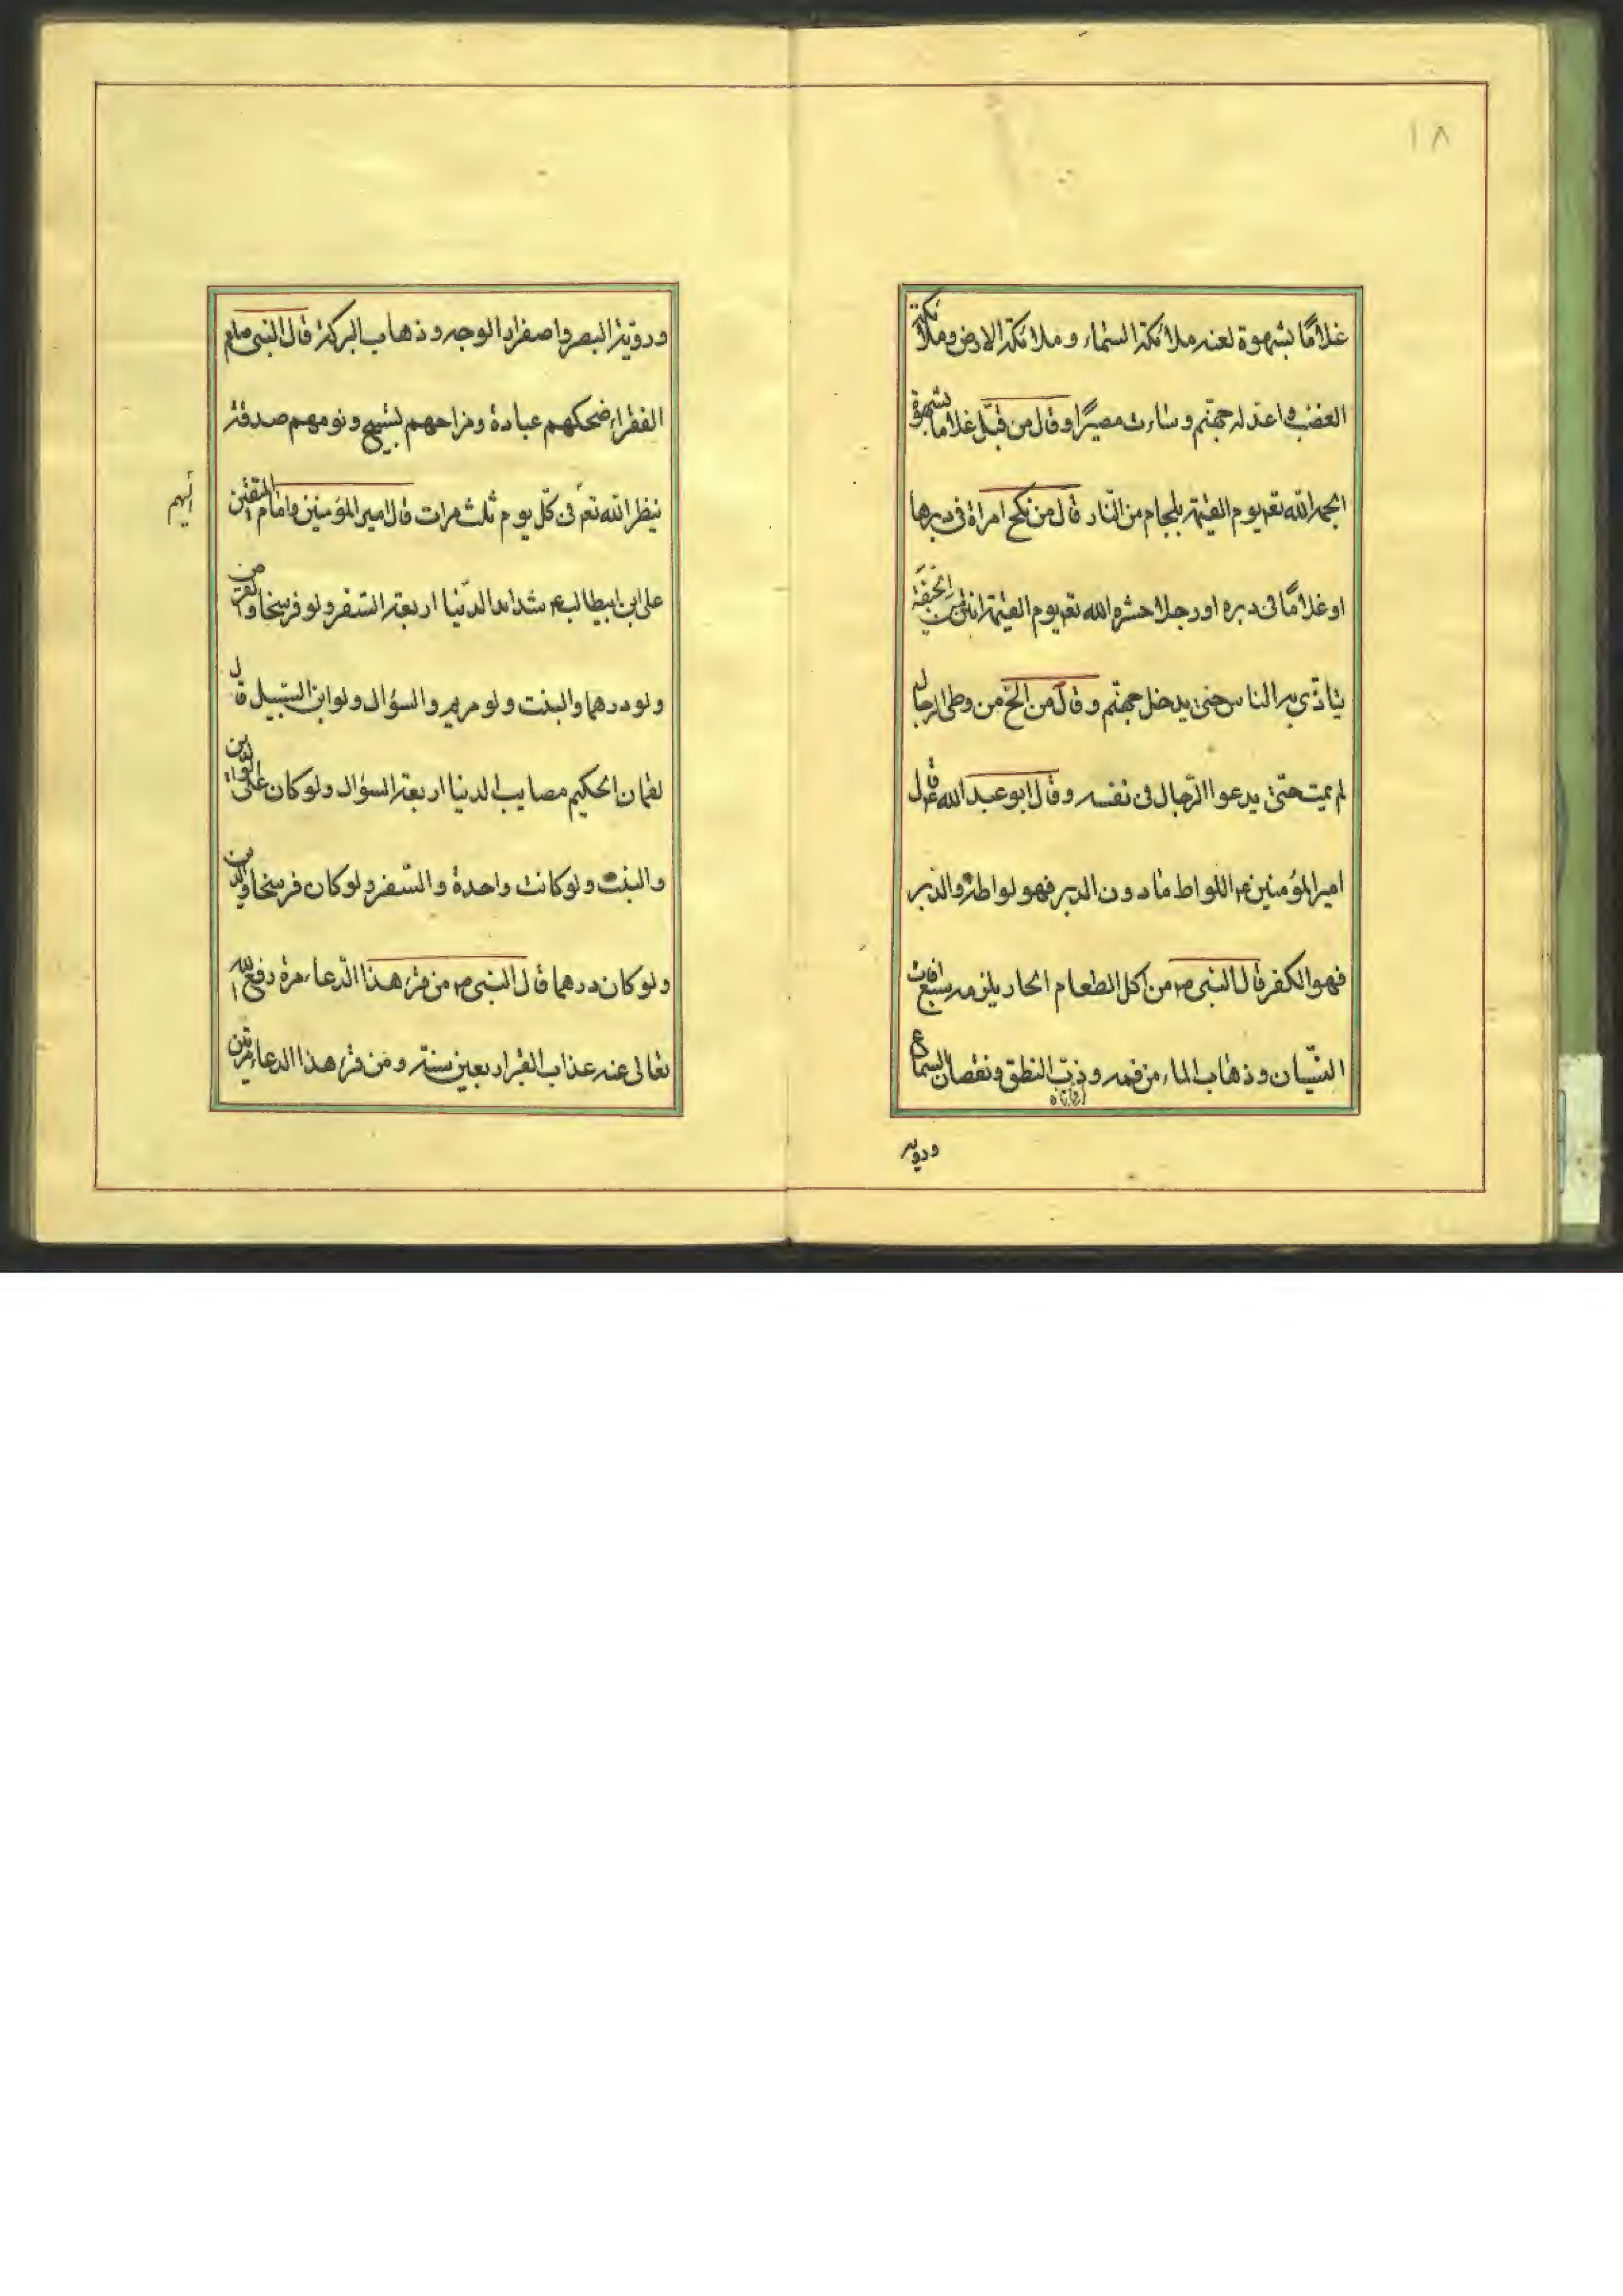 ١٨
غلامًا بشهوة لعنه ملائكة السّماء و ملائكة الارض وملائكة
الغضب و اعد له جهنّم و ساءت مصيرًا و قال من قبّل غلامًا بشهوة
الجمه الله تعم يوم القيمة بلجام من النّار قال من نكح امراة فى دبرها
او غلامًا فى دبره او رجلا حشره الله تعم يوم القيمة انتن من الجيفة
يتاذّى به الناس حتى يدخل جهنّم و قال من الحّ من وطى الرجال
لم يمت حتّى يدعوا الرّجال فى نفسه و قال ابو عبد الله ع قال
امير المؤمنين ع اللواط ما دون الدبر فهو لواطة والدبر
فهو الكفر قال النبى ص من اكل الطعام الحار يلزمه سبع افات
النّسيان و ذهاب الماء من فمه و ذهب النطق و نقصان السماع
ورويه
ورويّة البصر واصفرار الوجه و ذهاب البركة قال النبى صلعم
الفقراء ضحكهم عبادة ومزاحهم تسبيح و نومهم صدقة
ينظر الله تعم فى كلّ يوم ثلث مرات قال امير المؤمنين و امام المتقين
اليهم
على ابن ابيطالب ع شدايد الدّنيا اربعة السّفر ولو فرسخا و القرض
ولو درهما والبنت ولو مريم والسؤال ولو ابن السّبيل قال
لقمان الحكيم مصايب الدنيا اربعة السؤال ولو كان على الوالدين
والبنت ولو كانت واحدة والسّفر ولو كان فرسخا والدين
ولو كان درهما قال النبى ص من قرء هذا الدّعاء مرة رفع الله
تعالى عنه عذاب القبر اربعين سنة و من قرء هذا الدعاء مرتين